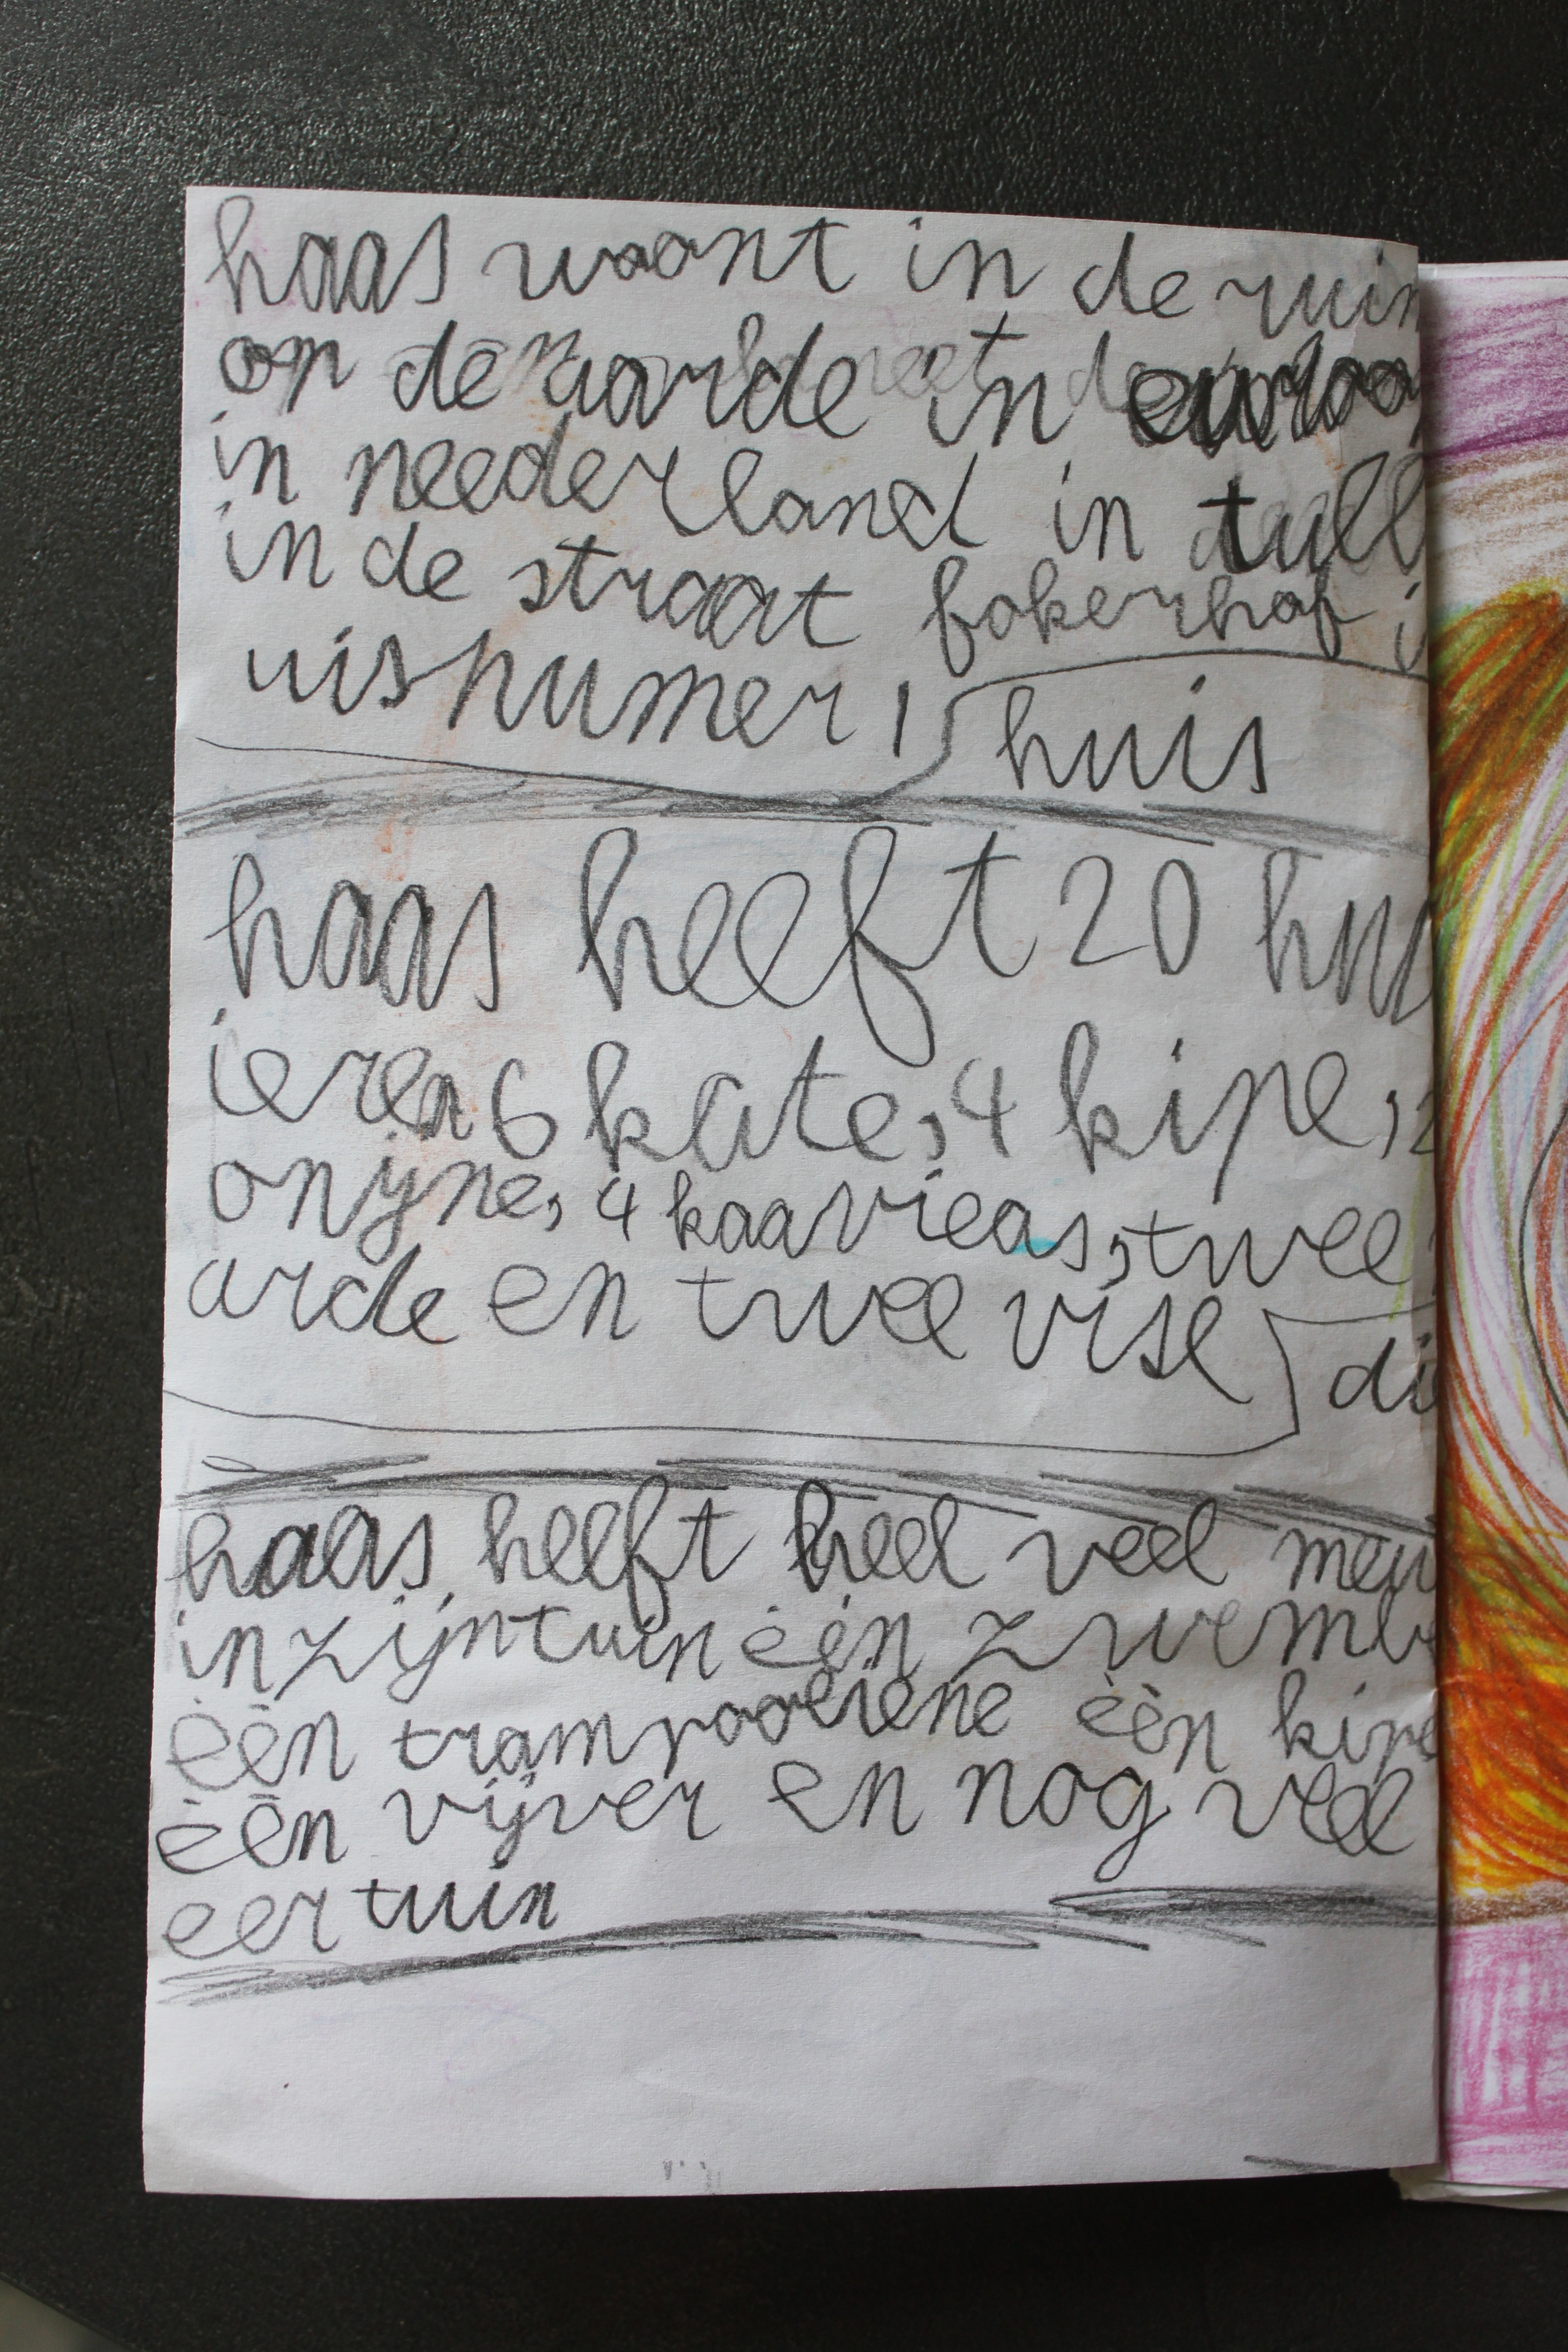 haas woont in de ruim
op de aarde in euroo
in needer land in tull
in de straat fokerhof i
uisnumer 1
huis
haas heeft 20 hui
ieren 6 kate, 4 kipe, 2
onijne, 4 kaavieas, twee
arde en twee vise
di
haas heeft heel veel meu
in zijn tuin één zwemb
één trampooliene één kipe
één vijver en nog veel
eer tuin